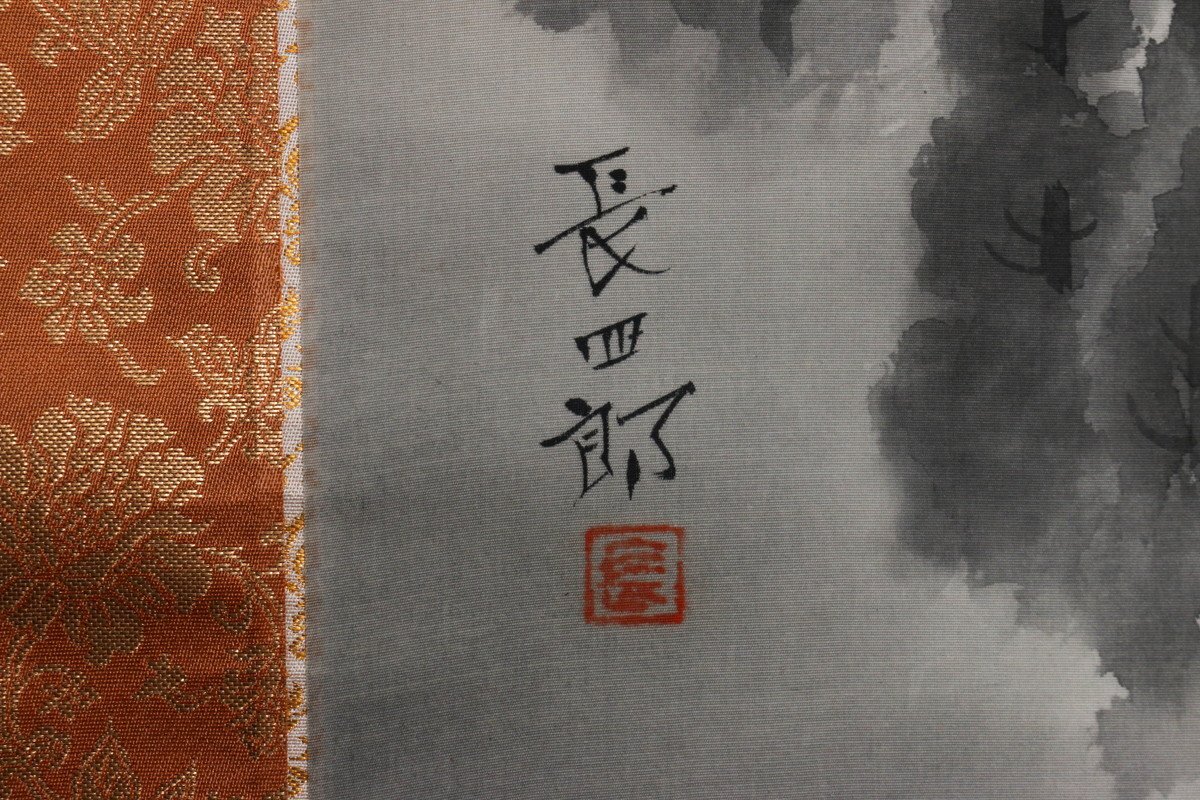 長四郎